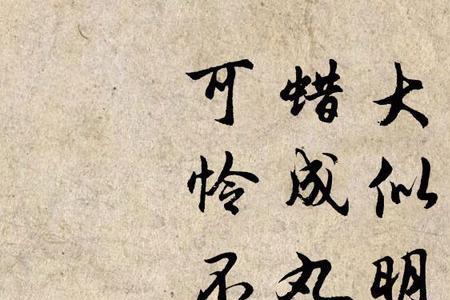 大似明
蜡成丸
可怜不